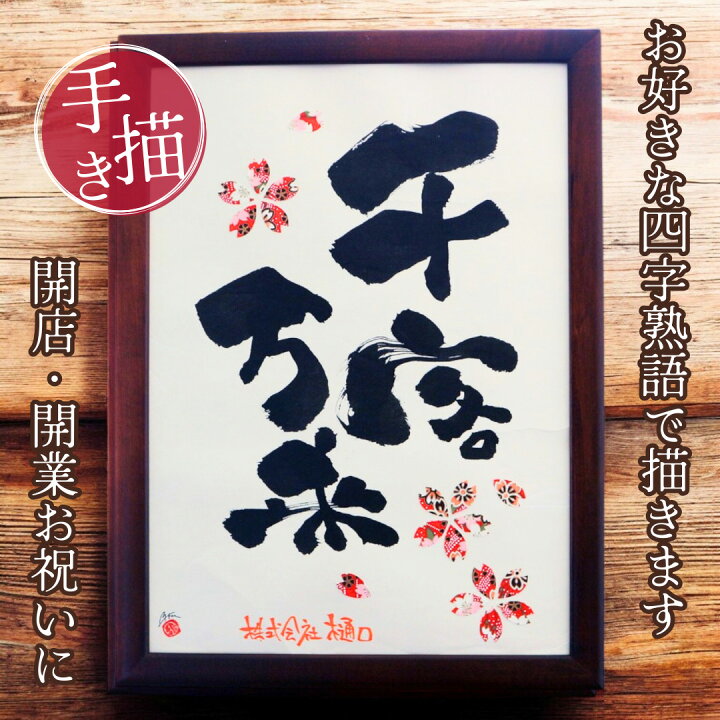 お好きな四字熟語で描きます
手描き
千客
万来
開店・開業お祝いに
株式会社樋口